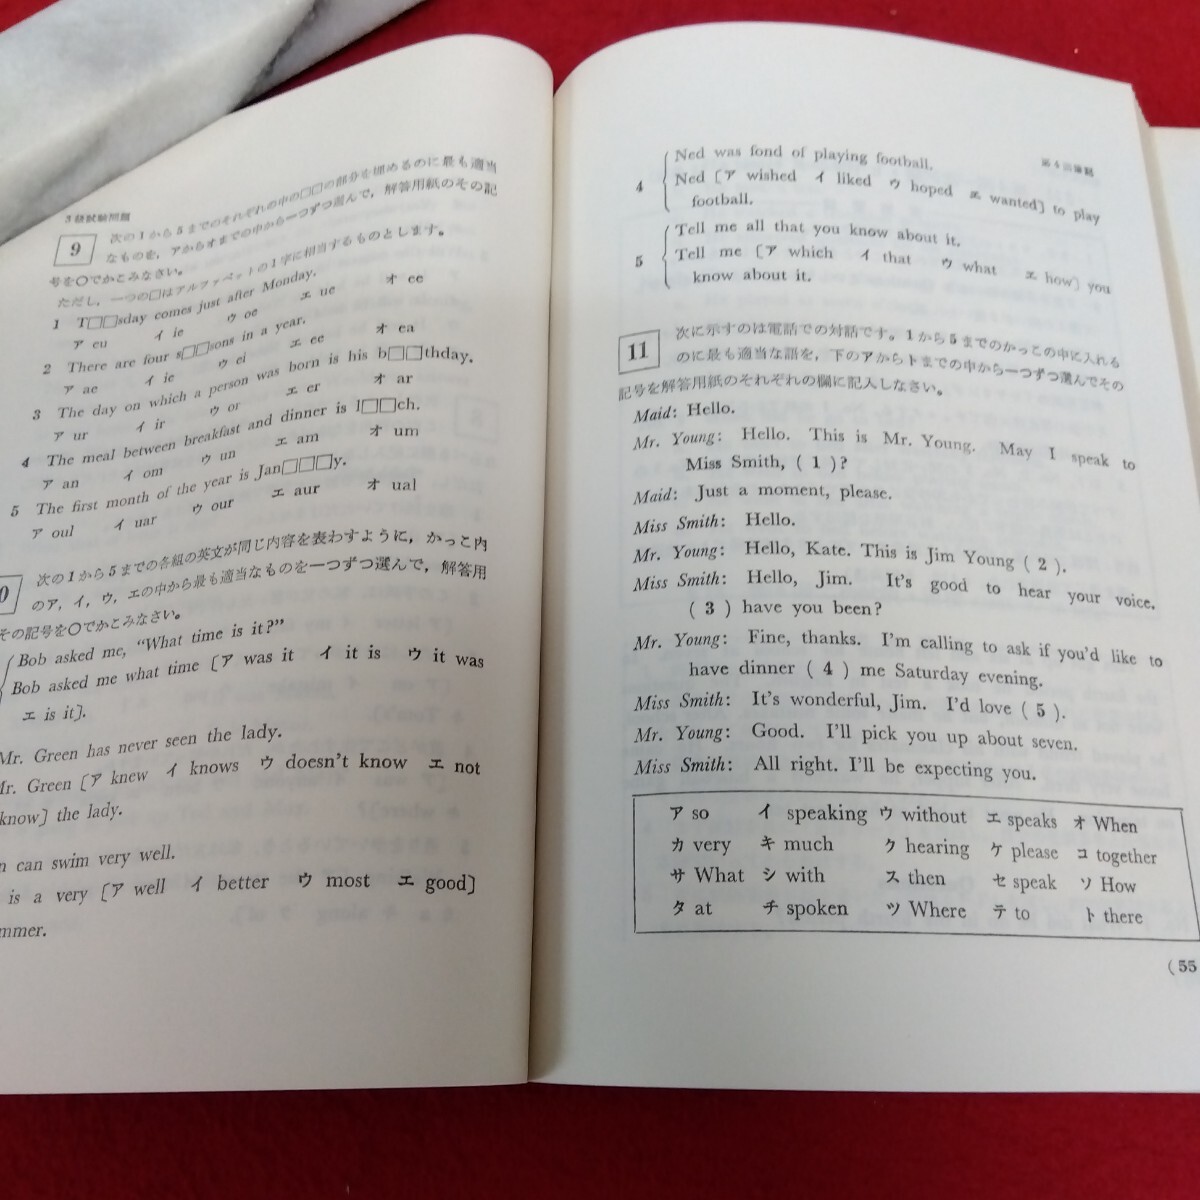 3級試験問題
9 次の1から5までのそれぞれの中の□□の部分を埋めるのに最も適当
なものを，アからオまでの中から一つずつ選んで，解答用紙のその記
号を○でかこみなさい。
ただし，一つの□はアルファベットの1字に相当するものとします。
1 T□□sday comes just after Monday.
ア eu イ ie ウ oe エ ue オ ee
2 There are four s□□sons in a year.
ア ae イ ie ウ ei エ ee オ ea
3 The day on which a person was born is his b□□thday.
ア ur イ ir ウ or エ er オ ar
4 The meal between breakfast and dinner is l□□ch.
ア an イ om ウ un エ am オ um
5 The first month of the year is Jan□□□y.
ア oul イ uar ウ our エ aur オ ual
0 次の1から5までの各組の英文が同じ内容を表わすように，かっこ内
のア，イ，ウ，エの中から最も適当なものを一つずつ選んで，解答用
その記号を○でかこみなさい。
Bob asked me, “What time is it?”
Bob asked me what time 〔ア was it イ it is ウ it was
エ is it〕.
Mr. Green has never seen the lady.
Mr. Green 〔ア knew イ knows ウ doesn't know エ not
know〕 the lady.
n can swim very well.
is a very 〔ア well イ better ウ most エ good〕
mmer.
第4回筆記
4 Ned was fond of playing football.
Ned 〔ア wished イ liked ウ hoped エ wanted〕 to play
football.
5 Tell me all that you know about it.
Tell me 〔ア which イ that ウ what エ how〕 you
know about it.
11 次に示すのは電話での対話です。1から5までのかっこの中に入れる
のに最も適当な語を，下のアからトまでの中から一つずつ選んでその
記号を解答用紙のそれぞれの欄に記入しなさい。
Maid: Hello.
Mr. Young: Hello. This is Mr. Young. May I speak to
Miss Smith, ( 1 )?
Maid: Just a moment, please.
Miss Smith: Hello.
Mr. Young: Hello, Kate. This is Jim Young ( 2 ).
Miss Smith: Hello, Jim. It's good to hear your voice.
( 3 ) have you been?
Mr. Young: Fine, thanks. I'm calling to ask if you'd like to
have dinner ( 4 ) me Saturday evening.
Miss Smith: It's wonderful, Jim. I'd love ( 5 ).
Mr. Young: Good. I'll pick you up about seven.
Miss Smith: All right. I'll be expecting you.
ア so イ speaking ウ without エ speaks オ When
カ very キ much ク hearing ケ please コ together
サ What シ with ス then セ speak ソ How
タ at チ spoken ツ Where テ to ト there
( 55